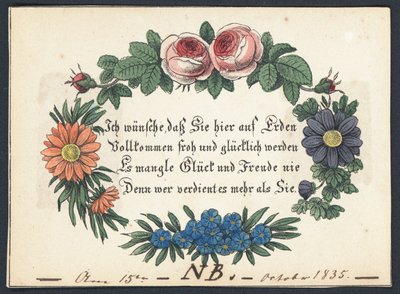 Ich wünsche, daß Sie hier auf Erden
Vollkommen froh und glücklich werden
Es mangle Glück und Freude nie
Denn wer verdient es mehr als Sie.
Am 15ten NB. October 1835.